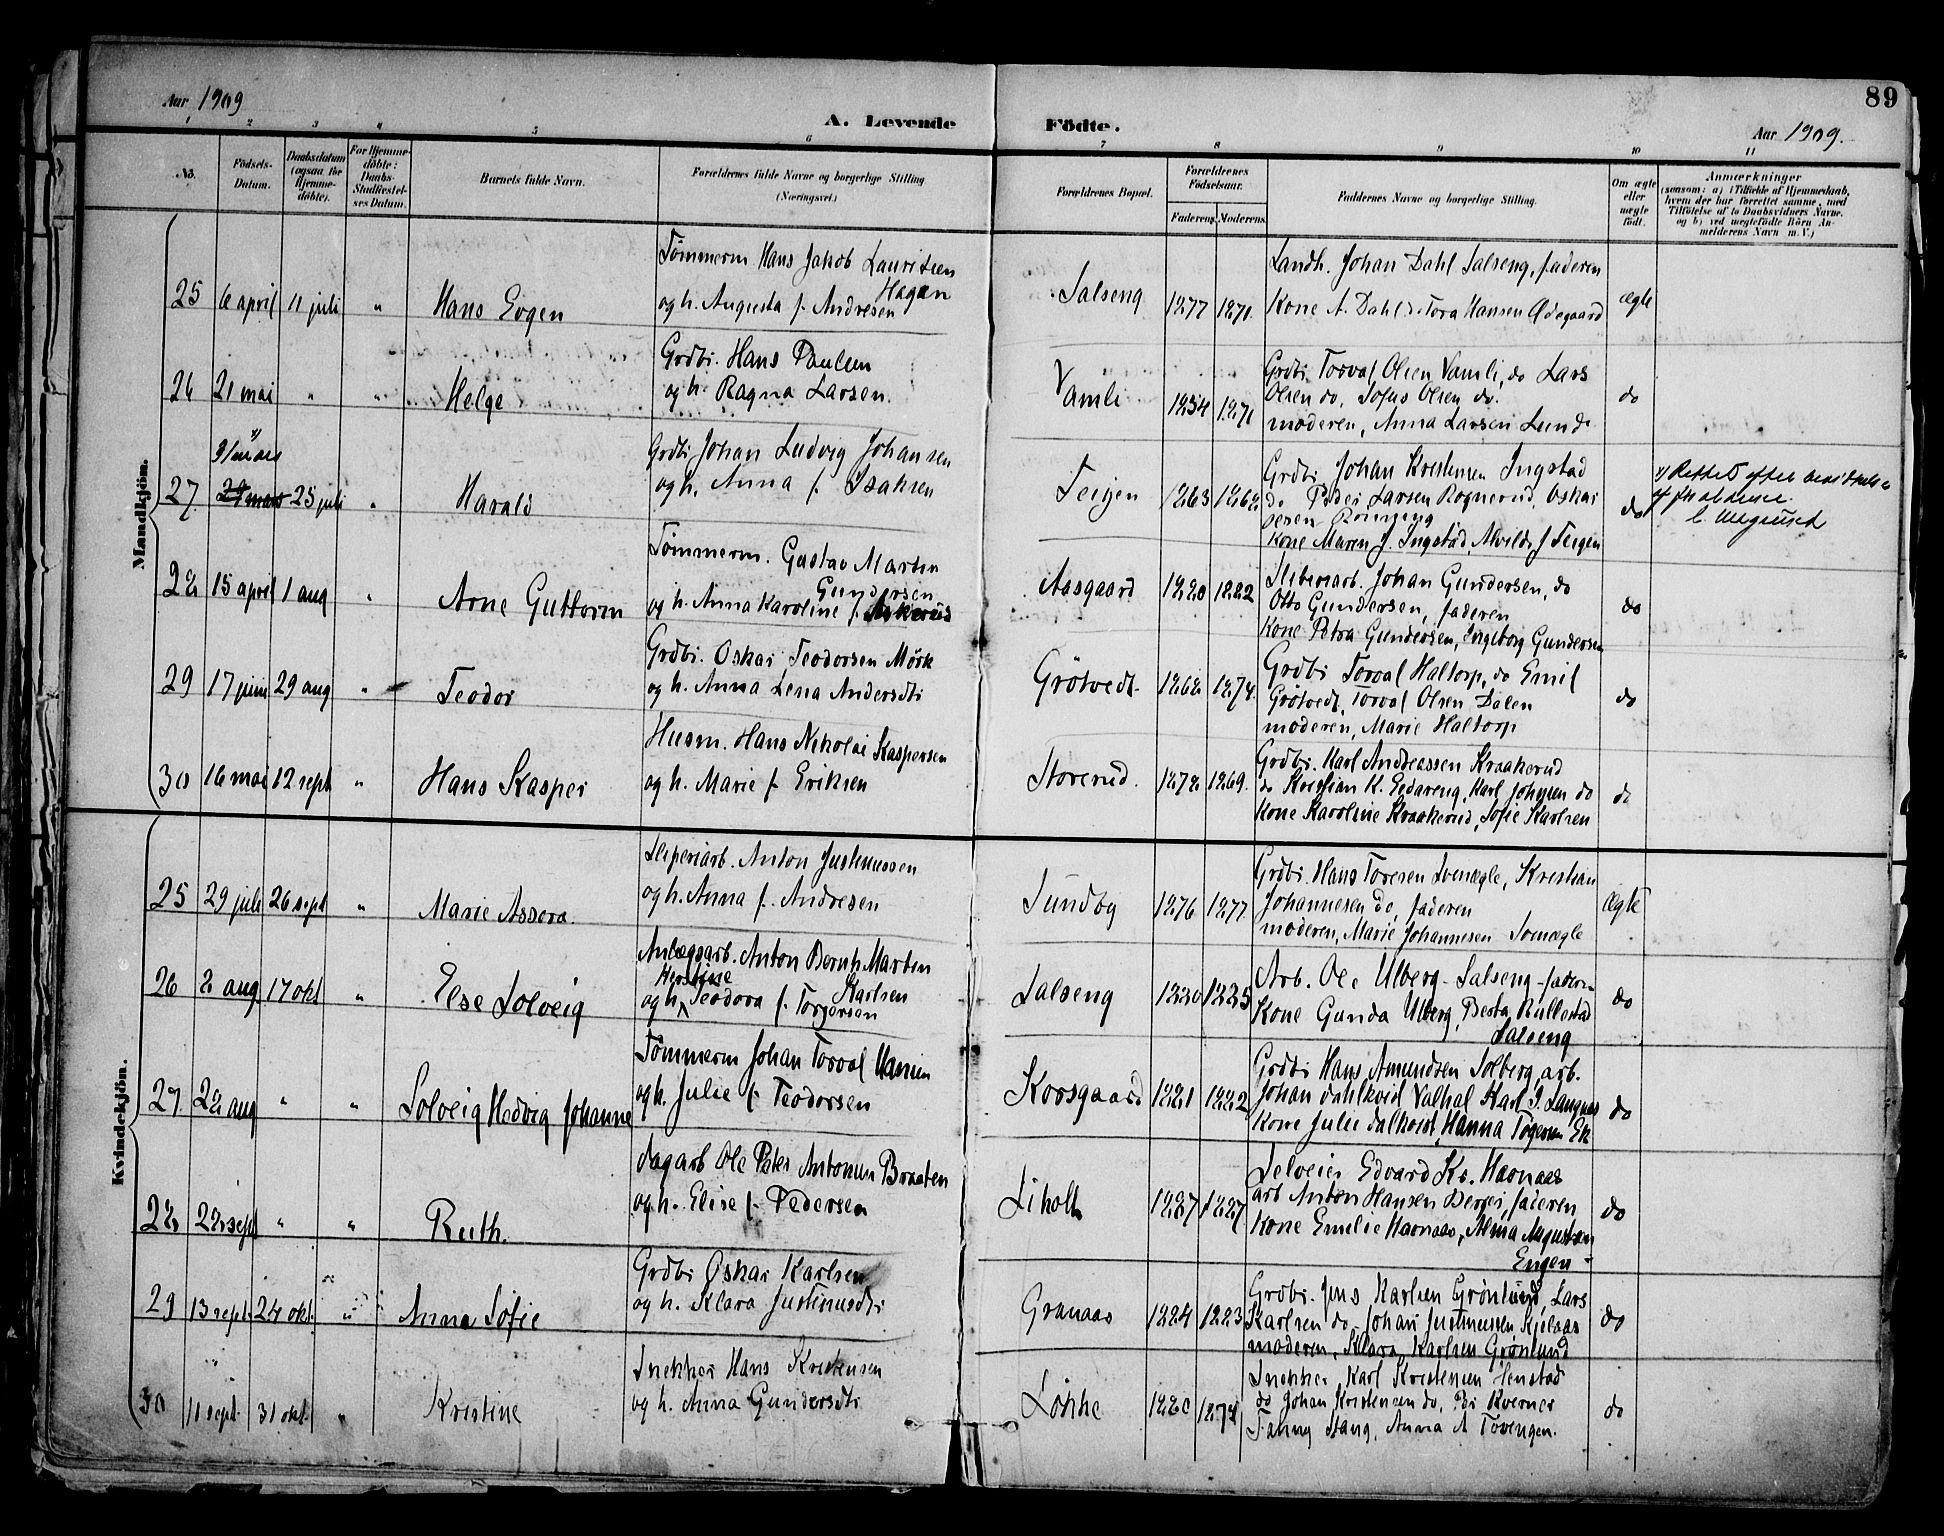 Aar 1909
A. Levende Födte.
Aar 1909.
89
1 2 3 4 5 6 7 8 9 10 11
No.
Födsels-
Datum.
Daabsdatum
(ogsaa for
Hjemme-
döbte).
For Hjemme-
döbte:
Daabs-
Stadfæstel-
ses Datum.
Barnets fulde Navn.
Forældrenes fulde Navne og borgerlige Stilling
(Næringsvei.)
Forældrenes Bopæl.
Forældrenes
Födselsaar.
Faderens. Moderens.
Faddernes Navne og borgerlige Stilling.
Om ægte
eller
uægte
födt.
Anmærkninger
(saasom: a) i Tilfælde af Hjemmedaab,
hvem der har forrettet samme, med
Tilföielse af to Daabsvidners Navne,
og b) ved uægtefödte Börn An-
melderens Navn m. V.)
Mandkjön.
25 6 april 11 juli " Hans Evgen
Tömmerm Hans Jakob Lauritsen
Hagen
og h. Augusta f. Andresen
Salseng 1877 1871.
Landh. Johan Dahl Salseng, faderen
Kone A. Dahl, Tora Hansen Ødegaard
ægte
26 21 mai " " Helge
Grdbr. Hans Paulsen
og h. Ragna Larsen.
Vamli 1854 1871
Grdbr. Torval Olsen Vamli, do Lars
Olsen do, Sofus Olsen do.
moderen, Anna Larsen Lund
do
27 31/mars 25 juli " Harald
Grdbr Johan Ludvig Johansen
og h. Anna f. Isaksen
Teigen 1863 1868
Grdbr Johan Kristensen Ingstad
do Peder Larsen Rognerud, Oskar
Kone Maren J. Ingstad, Alvilde J Teigen
do
1) Rettet efter
28 15 april 1 aug " Arne Guttorm
Tömmerm. Gustav Martin
Gundersen
og h. Anna Karoline f.
Aasgaard 1880 1882
Sliberiarb. Johan Gundersen, do
Otto Gundersen, faderen
Kone Petra Gundersen, Ingeborg Gundersen
do
29 17 juni 29 aug " Teodor
Grdbr. Oskar Teodorsen Mörk
og h. Anna Lena Andersdtr
Grötvedt 1868 1874
Grdbr Torval Haltorp, do Emil
Grötvedt, Torval Olsen Dalen
moderen, Marie Haltorp
do
30 16 mai 12 sept " Hans Kasper
Husm. Hans Nikolai Kaspersen
og h. Marie f. Eriksen
Storerud. 1878 1869.
Grdbr. Karl Andreassen Kraakerud
do Kristian K. Eedareng, Karl Johnsen do
Kone Karoline Kraakerud, Sofie Karlsen
do
Kvindekjön.
25 29 juli 26 sept " Marie Assora
Sliperiarb. Anton Justinussen
og h. Anna f. Andresen
Sundby 1876 1877
Grdbr. Hans Toresen Svenægle, Kristian
Johannesen do, faderen
moderen, Marie Johannesen Svenægle
Ægte
26 8 aug 17 okt " Else Solveig
Anlægsarb. Anton Bernh. Martin
Karlsen
og h. Teodora f. Torgersen
Salseng 1880 1885
Arb. Ole Ulberg Salseng faderen
Kone Gunda Ulberg, Berta Rullestad
Salseng
do
27 28 aug " " Solveig Hedvig Johanne
Tömmerm Johan Torval Hansen
og h. Julie f. Teodorsen
Korsgaard 1881 1882
Grdbr Hans Amundsen Solberg, arb.
Johan Dahlkvist Valhal Karl J. Langnes
Kone Julie Dalkvist, Hanna Togersen Ek
do
28 28 sept " " Ruth.
Dagarb Ole Peter Antonsen Braaten
og h. Elise f. Pedersen
Liholt 1887 1887
Selveier Edvard Kr. Havnaas
arb Anton Hansen Berger, faderen
Kone Emilie Havnaas, Alma Augustsen
Engen
do
29 13 sept. 24 okt. " Anna Sofie
Grdbr Oskar Karlsen
og h. Klara Justinusdtr
Granaas 1884 1883
Grdbr. Jens Karlsen Grönlund, Lars
Karlsen do, Johan Justinussen Kjelsaas
moderen, Klara Karlsen Grönlund
do
30 11 sept. 31 okt. " Kristine
Snekker Hans Kristensen
og h. Anna Gundersdtr
Lökke 1880 1874
Snekker Karl Kristensen Henstad
do Johan Kristensen do, Per Kverner
Fanny Stang, Anna A Tovengen.
do